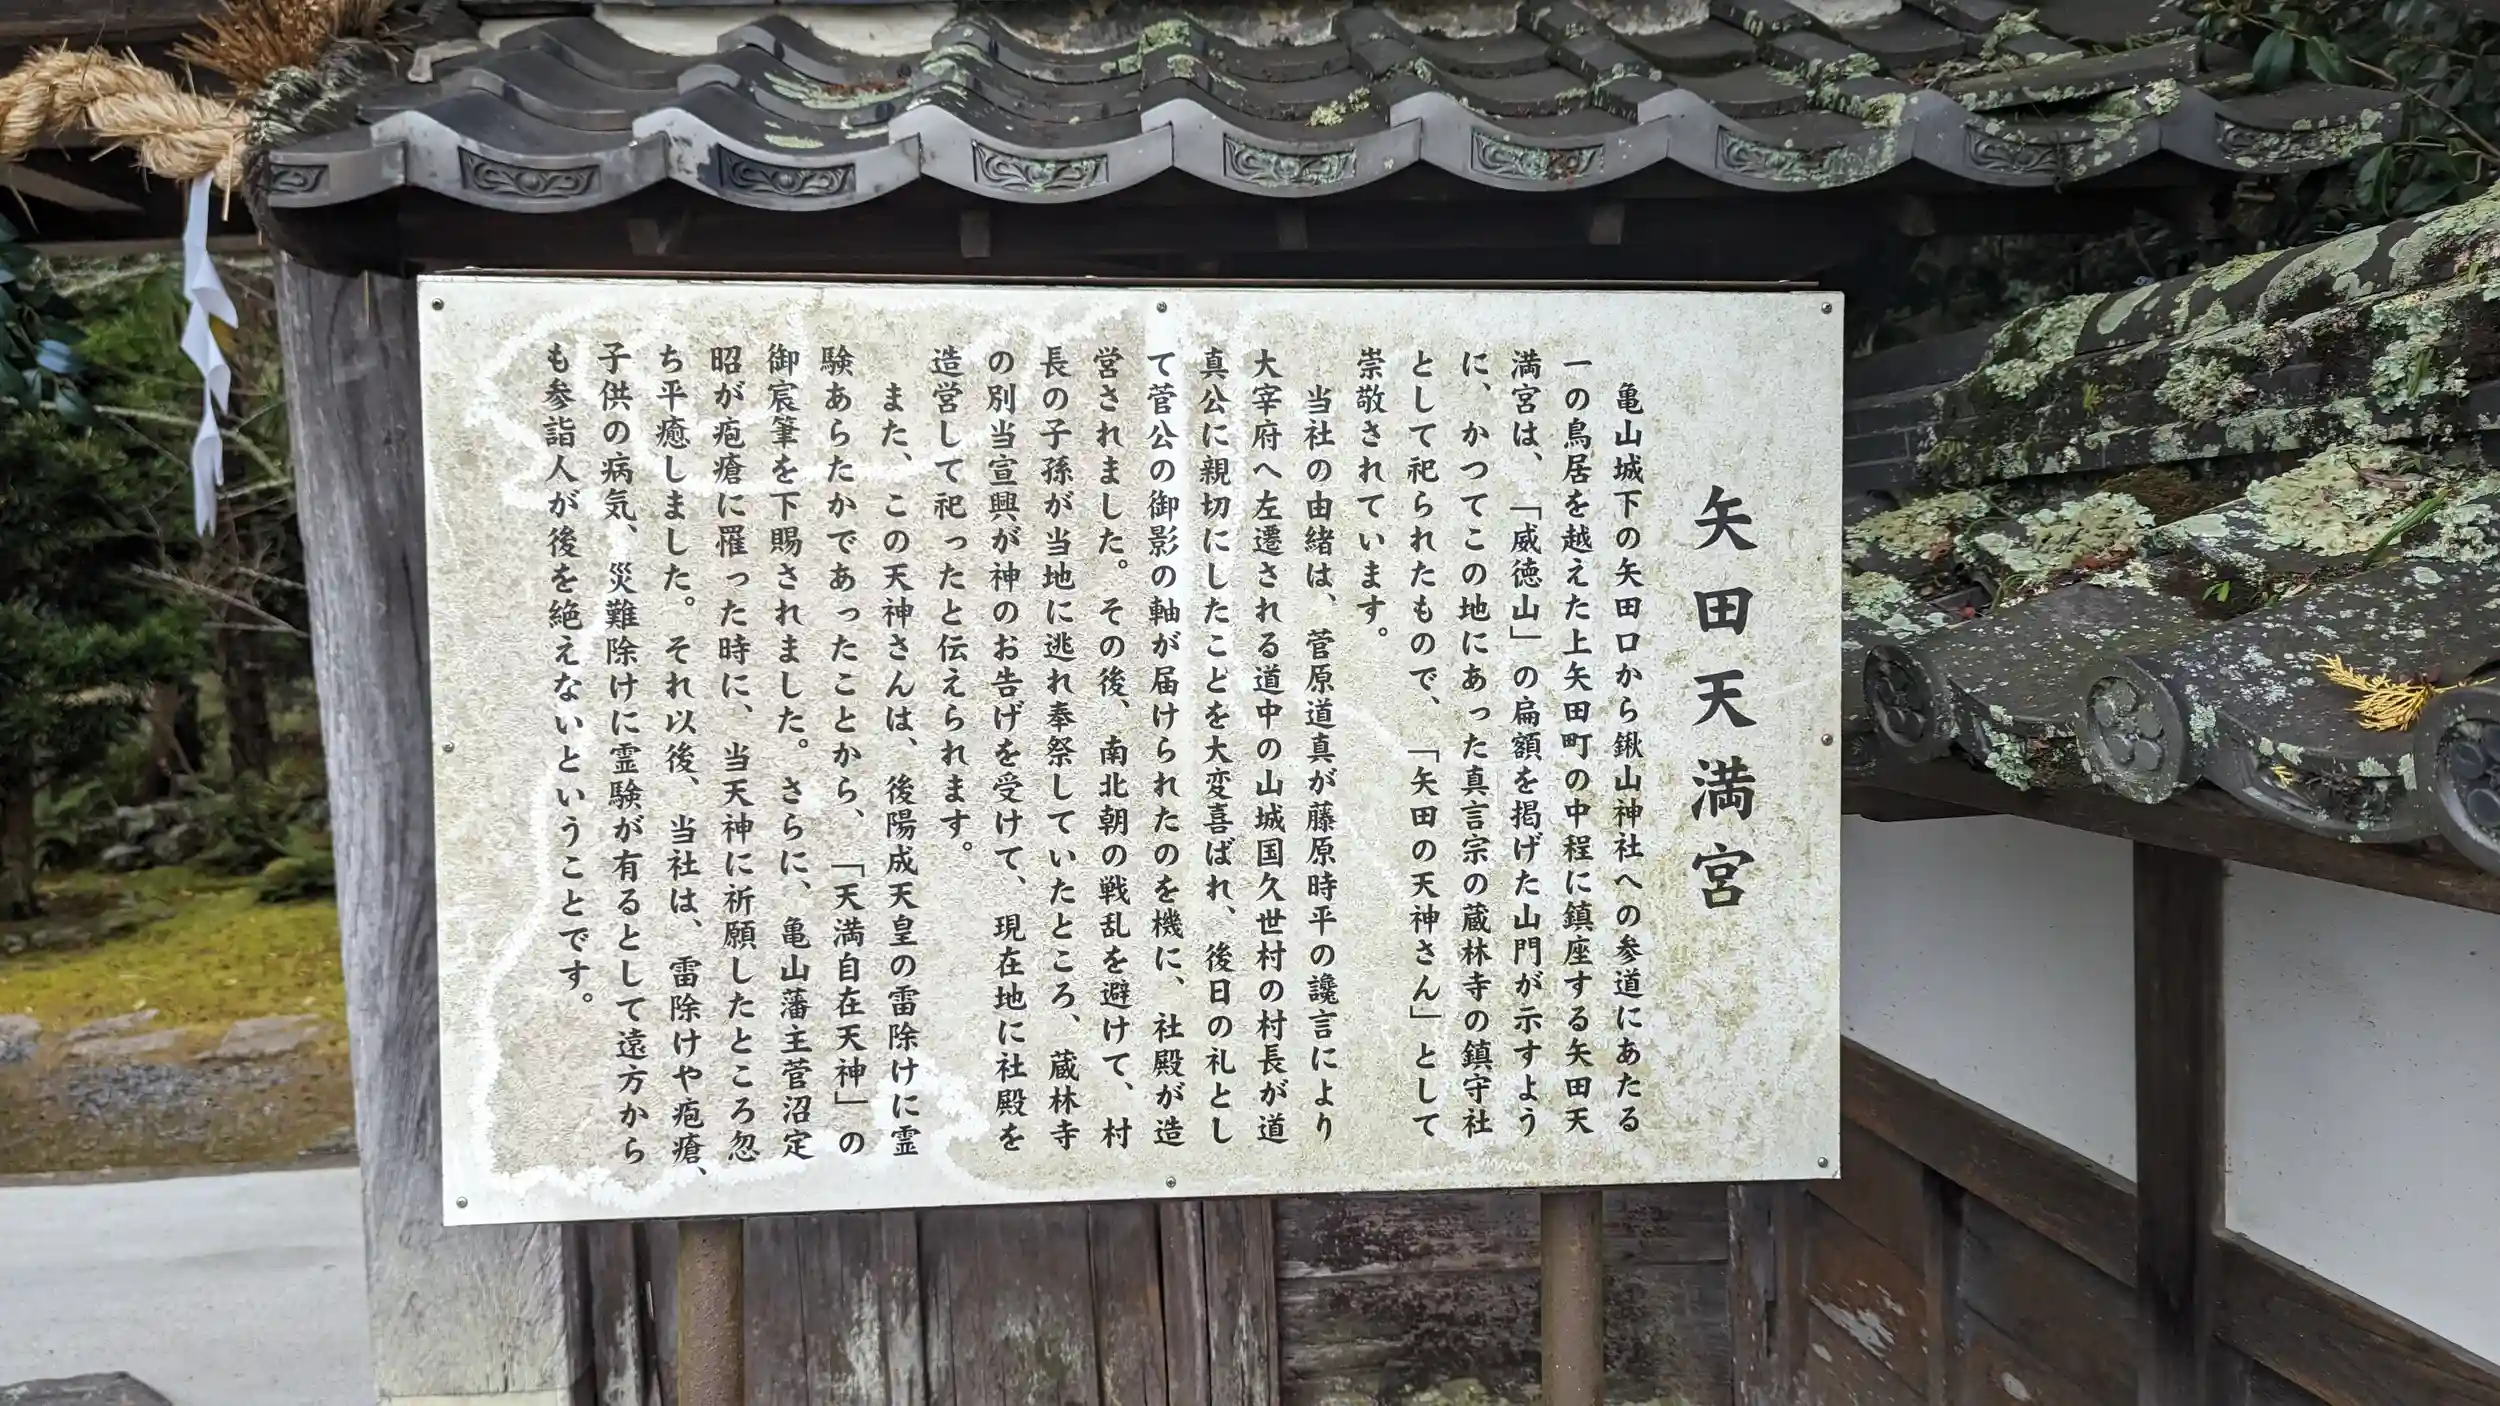 矢田天満宮
亀山城下の矢田口から鍬山神社への参道にあたる
一の鳥居を越えた上矢田町の中程に鎮座する矢田天
満宮は、「威徳山」の扁額を掲げた山門が示すよう
に、かつてこの地にあった真言宗の蔵林寺の鎮守社
として祀られたもので、「矢田の天神さん」として
崇敬されています。
当社の由緒は、菅原道真が藤原時平の讒言により
大宰府へ左遷される道中の山城国久世村の村長が道
真公に親切にしたことを大変喜ばれ、後日の礼とし
て菅公の御影の軸が届けられたのを機に、社殿が造
営されました。その後、南北朝の戦乱を避けて、村
長の子孫が当地に逃れ奉祭していたところ、蔵林寺
の別当宣興が神のお告げを受けて、現在地に社殿を
造営して祀ったと伝えられます。
また、この天神さんは、後陽成天皇の雷除けに霊
験あらたかであったことから、「天満自在天神」の
御宸筆を下賜されました。さらに、亀山藩主菅沼定
昭が疱瘡に罹った時に、当天神に祈願したところ忽
ち平癒しました。それ以後、当社は、雷除けや疱瘡、
子供の病気、災難除けに霊験が有るとして遠方から
も参詣人が後を絶えないということです。